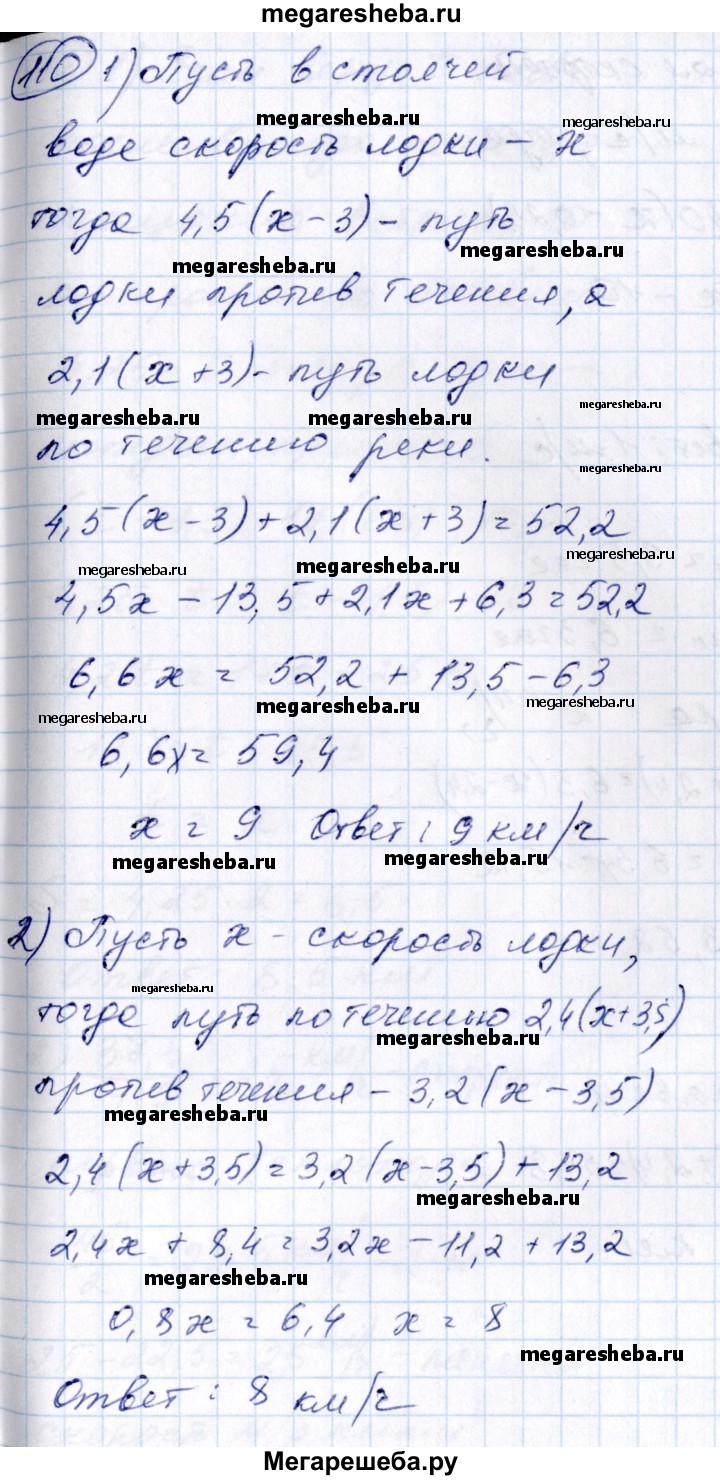 megaresheba.ru
110 1) Пусть в стоячей
megaresheba.ru megaresheba.ru
воде скорость лодки – x
тогда 4,5(x – 3) – путь
megaresheba.ru
megaresheba.ru
лодки против течения, а
2,1(x + 3) – путь лодки
megaresheba.ru megaresheba.ru megaresheba.ru
по течению реки.
megaresheba.ru
4,5(x – 3) + 2,1(x + 3) = 52,2
megaresheba.ru megaresheba.ru megaresheba.ru
4,5x – 13,5 + 2,1x + 6,3 = 52,2
6,6x = 52,2 + 13,5 – 6,3
megaresheba.ru megaresheba.ru megaresheba.ru
6,6x = 59,4
x = 9 Ответ: 9 км/ч
megaresheba.ru megaresheba.ru
2) Пусть x – скорость лодки,
megaresheba.ru
тогда путь по течению 2,4(x+3,5)
megaresheba.ru
против течения – 3,2(x – 3,5)
megaresheba.ru
2,4(x+3,5) = 3,2(x–3,5) + 13,2
megaresheba.ru
2,4x + 8,4 = 3,2x – 11,2 + 13,2
megaresheba.ru
0,8x = 6,4 x = 8
megaresheba.ru
Ответ: 8 км/ч
Мегарешеба.ру